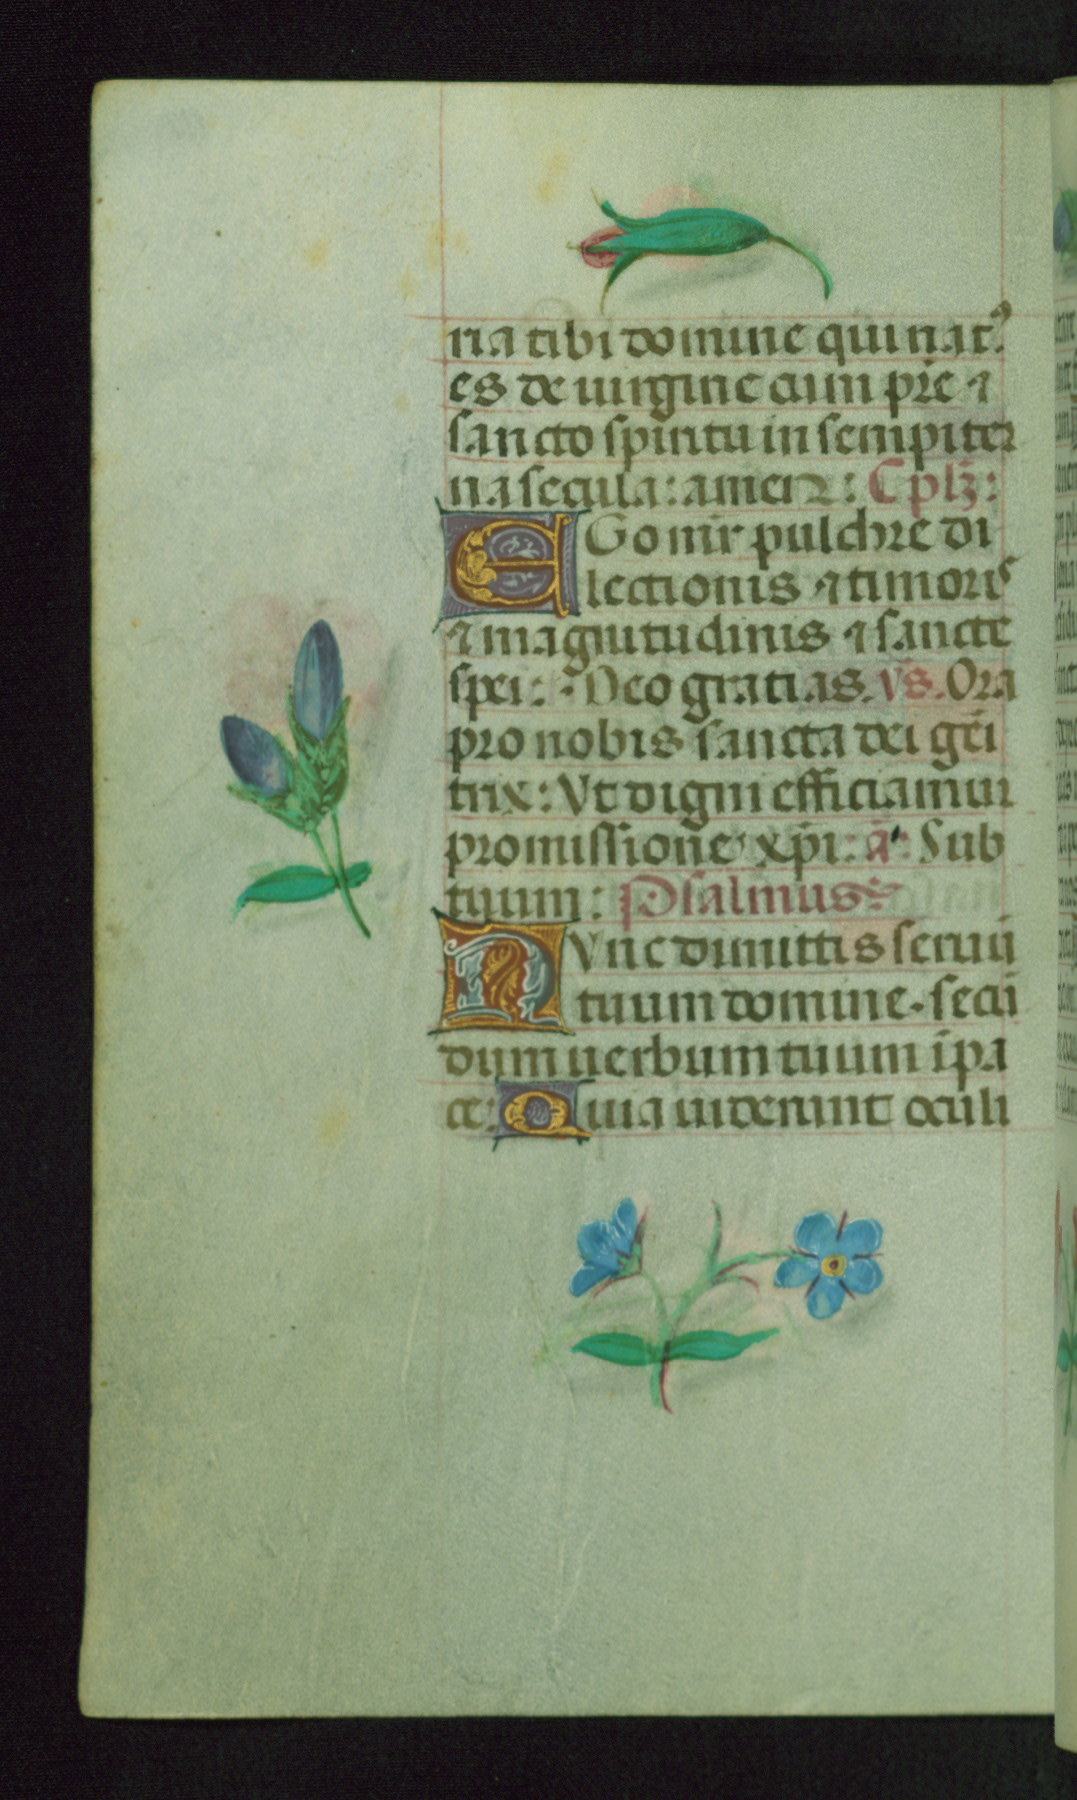 ria tibi domine qui natꝰ
es de uirgine cum pr̄e ⁊
sancto spiritu in sempiter
na secula: amen: Cplꝫ:
EGo mr̄ pulchre di
lectionis ⁊ timoris
⁊ magnitudinis ⁊ sancte
spei: · Deo gratias. Vs. Ora
pro nobis sancta dei gēi
trix: Vt digni efficiamur
promissione xp̄i: a᷎: Sub
tuum: Psalmus
NVnc dimittis seruū
tuum domine. secū
dum uerbum tuum ī pa
ce: Quia uiderunt oculi